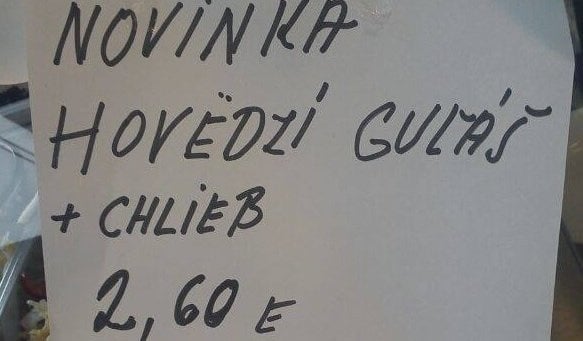 NOVINKA
HOVËDZI GUĽÁŠ
+ CHLIEB
2,60 E